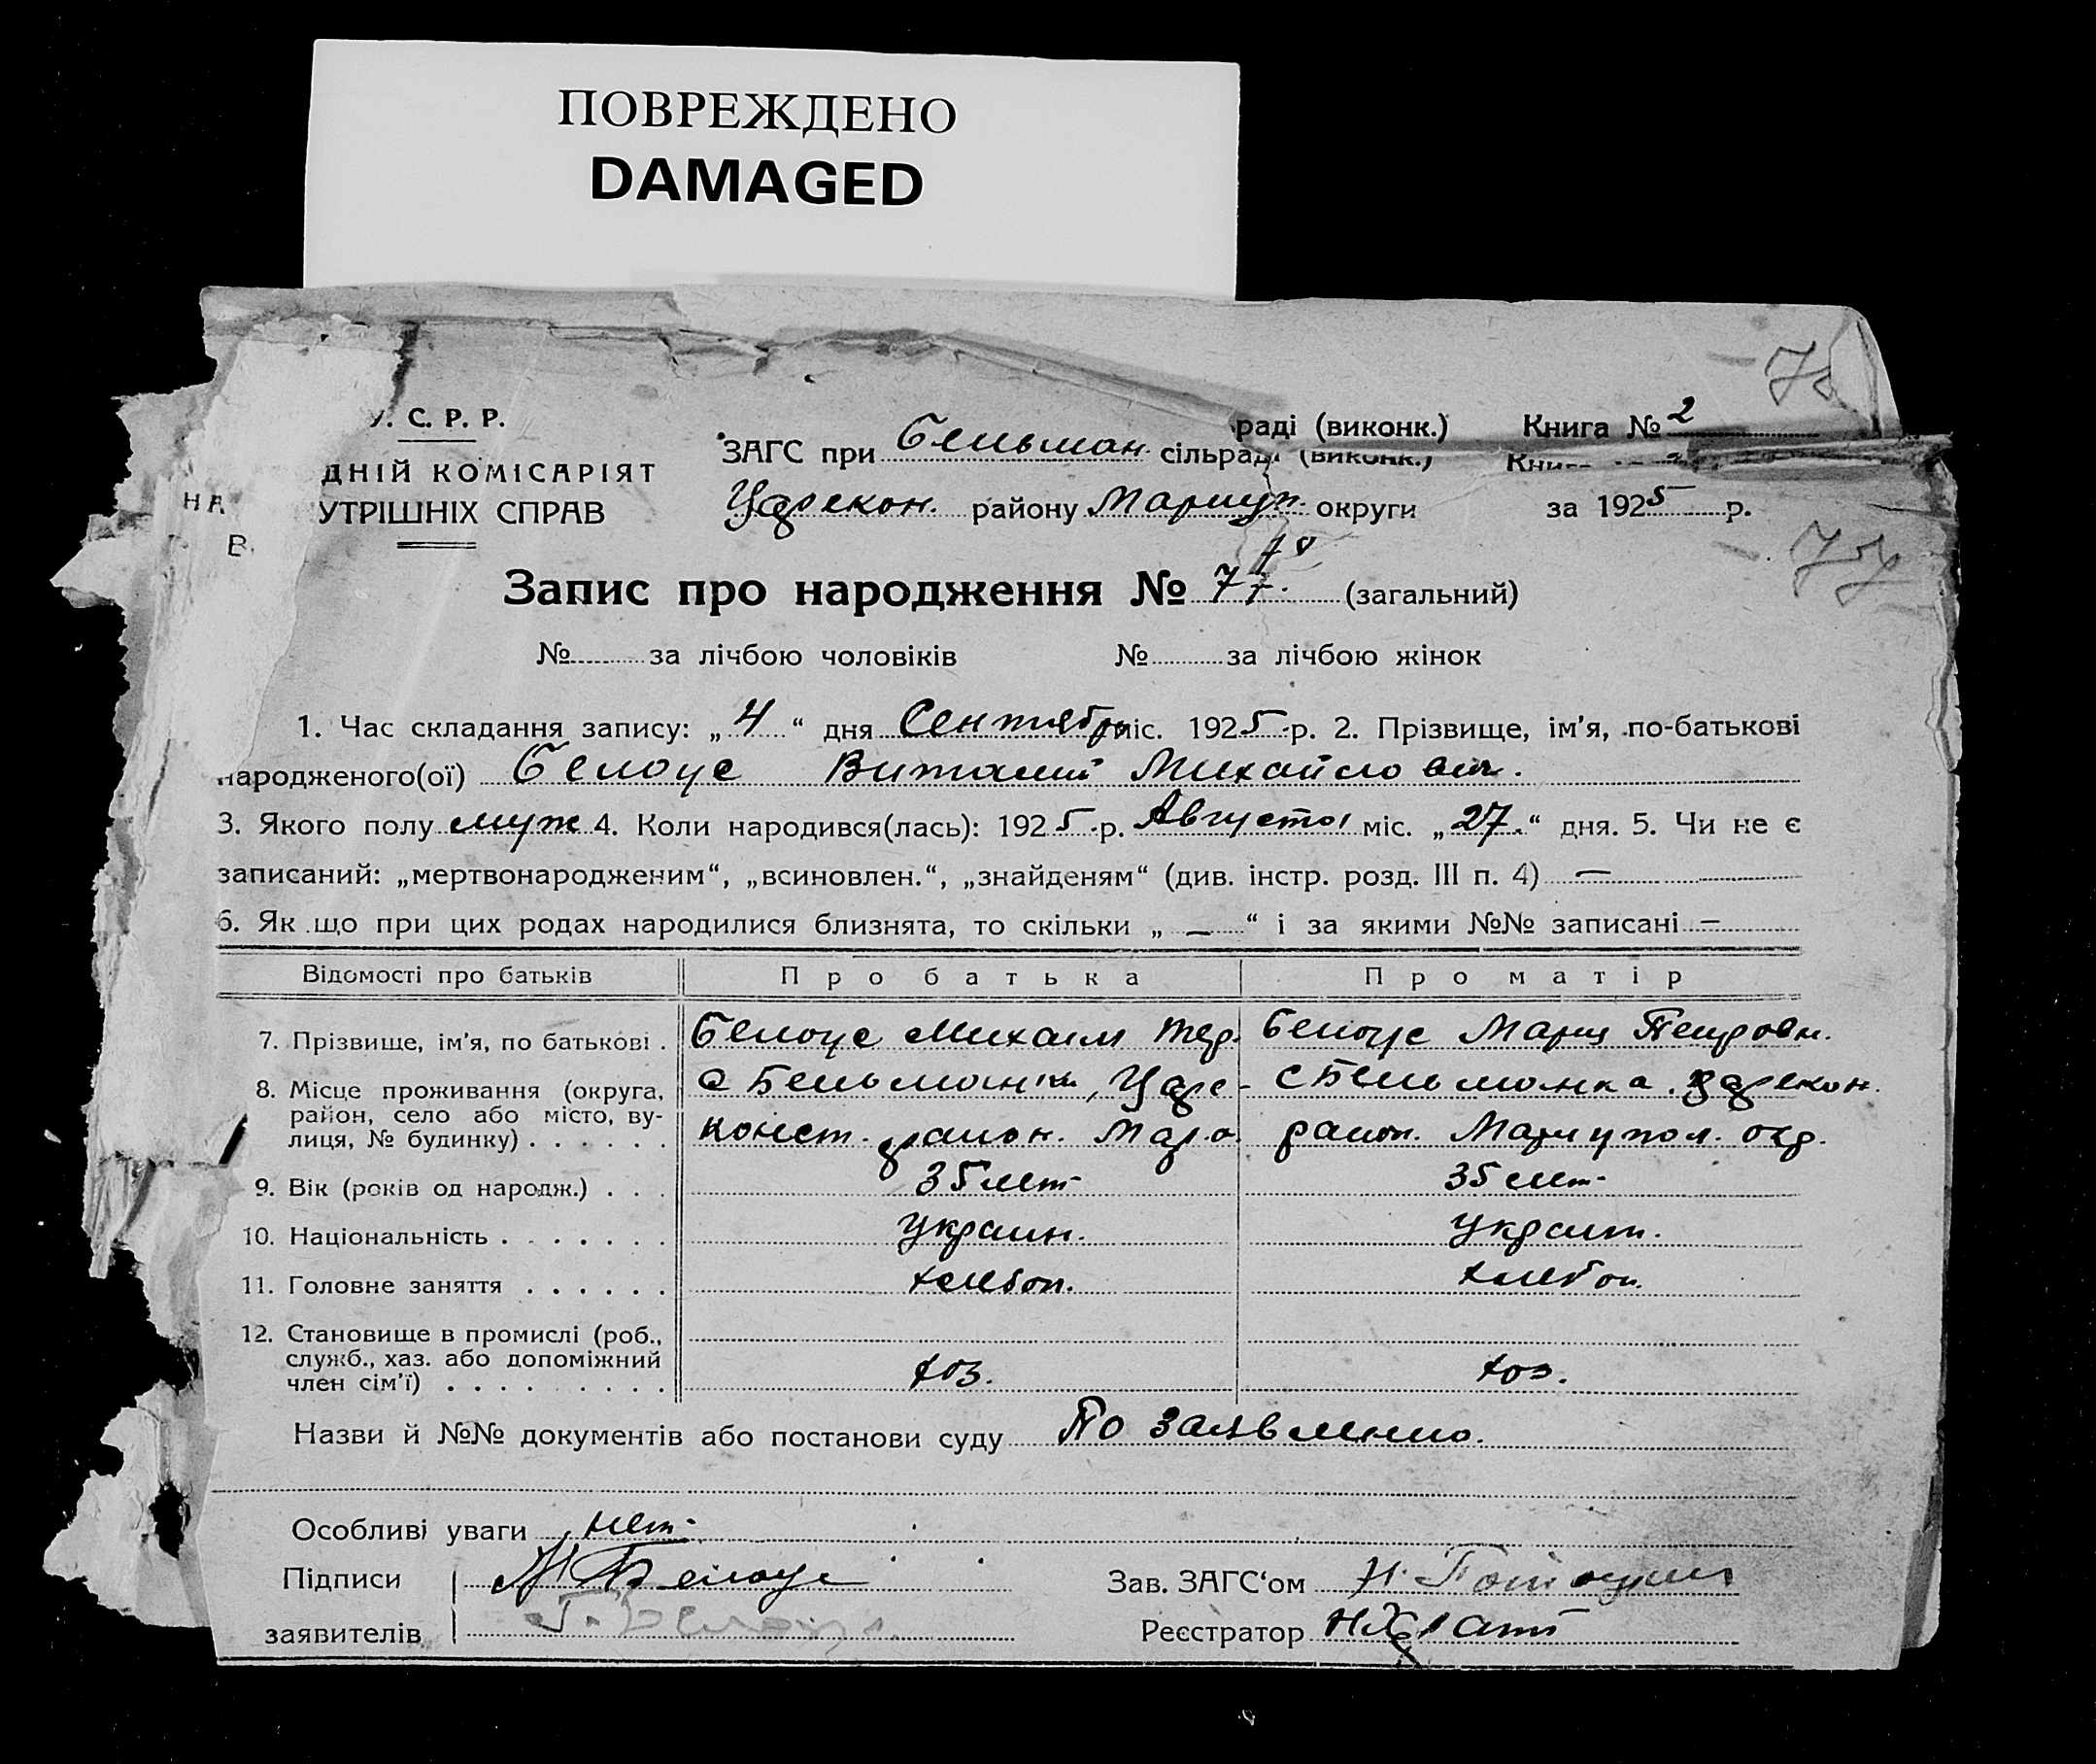 ПОВРЕЖДЕНО
DAMAGED
У. С. Р. Р.
ДНІЙ КОМІСАРІЯТ
НА
УТРІШНІХ СПРАВ
В
раді (виконк.) Книга № 2
ЗАГС при Бельман. сільраді (виконк.)
Царекон. району Мариуп. округи за 1925 р.
78
Запис про народження № 77. (загальний)
№ за лічбою чоловіків № за лічбою жінок
1. Час складання запису: „ 4 “ дня Сентябр міс. 1925 р. 2. Прізвище, ім'я, по-батькові
народженого(ої) Белоус Виталий Михайлович.
3. Якого полу муж 4. Коли народився(лась): 1925 р. Августа міс. „ 27. “ дня. 5. Чи не є
записаний: „мертвонародженим“, „всиновлен.“, „знайденям“ (див. інстр. розд. III п. 4) —
6. Як що при цих родах народилися близнята, то скільки „ — “ і за якими №№ записані —
Відомості про батьків Про батька Про матір
7. Прізвище, ім'я, по батькові . Белоус Михаил Белоус Мария Петровн.
8. Місце проживання (округа, с Бельманка, Царе- с Бельманка. Царекон.
район, село або місто, ву-
лиця, № будинку) . . . . . . конст. район. Мар.о. район. Мариупол. окр.
9. Вік (років од народж.) . . . 35 лет 35 лет
10. Національність . . . . . . . Украин. Украин.
11. Головне заняття . . . . . . хлебоп. хлебоп.
12. Становище в промислі (роб.,
служб., хаз. або допоміжний
член сім'ї) . . . . . . . . . хоз. хоз.
Назви й №№ документів або постанови суду По заявлению.
Особливі уваги нет
Підписи М Белоус Зав. ЗАГС'ом
заявителів Г. Белоус Реєстратор